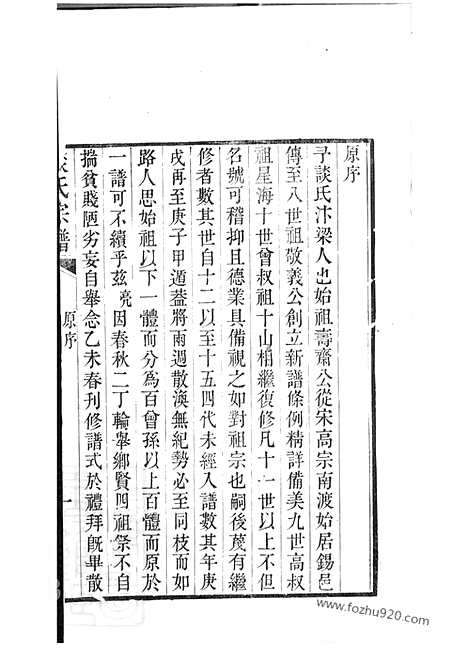 原序
予談氏汴梁人也始祖壽齋公從宋高宗南渡始居錫邑
傳至八世祖敬義公創立新譜條例精詳備美九世高叔
祖星海十世曾叔祖十山相繼復修凡十一世以上不但
名號可稽抑且德業具備視之如對祖宗也嗣後蔑有繼
修者數其世自十二以至十五四代未經入譜數其年庚
戌再至庚子甲遁葢將兩週散渙無紀勢必至同枝而如
路人思始祖以下一體而分為百曾孫以上百體而原於
一譜可不續乎茲亮因春秋二丁輪舉鄉賢四祖祭不自
揣貧賤陋劣妄自舉念乙未春刊修譜式於禮拜既畢散
氏宗譜
原序
一
www.fozhu920.com